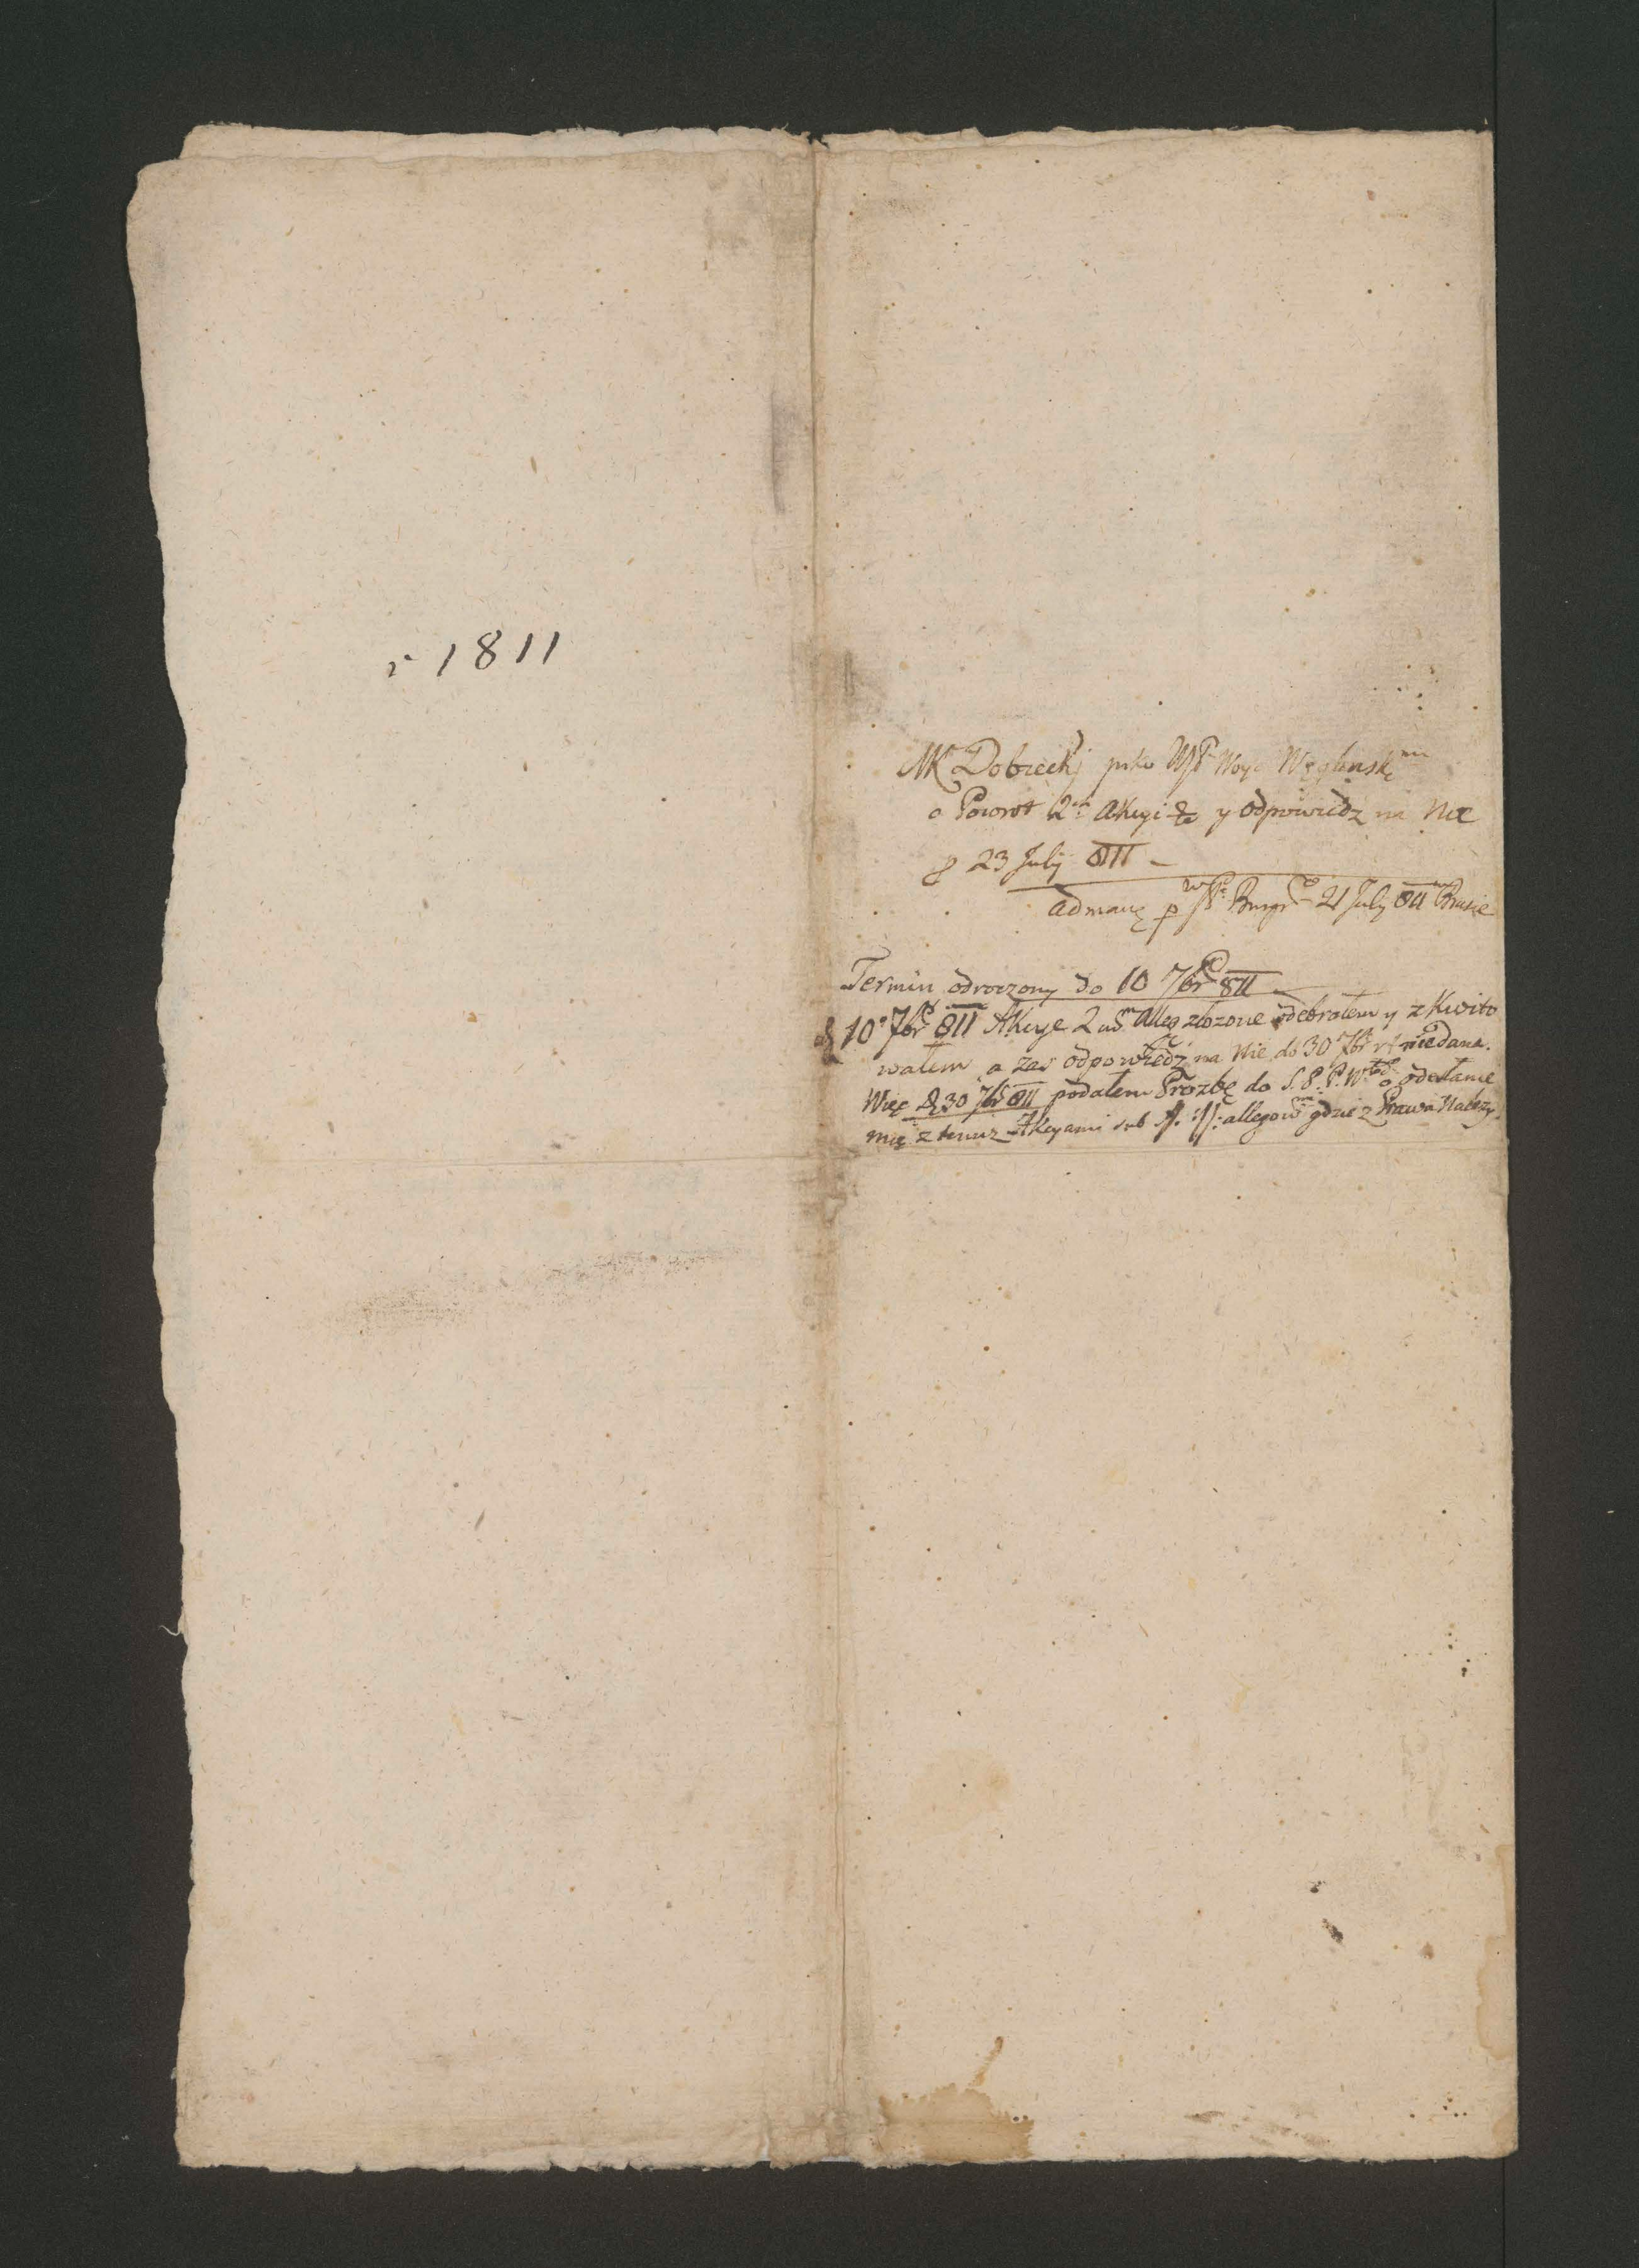 r 1811
MK Dobiecki prko WJP Woyc Węglensk mu
o Powrot 2ch Akcyi & y odpowiedz na Nie
p 23 July 811
admanę p WJP Burgr 21 July 811 w Busie
Termin odroczony do 10 7br 811
d 10° 7br 811 Akcye 2 alleg złozone odebrałem y zKwito
wałem a zas odpowiedź na Nie do 30 7br niedana.
Więc d 30 7br 811 podałem Prozbę do S. P. P. W. o odesłanie
mię z temiz Akcyami sub allegow gdzie z Prawa Należy.